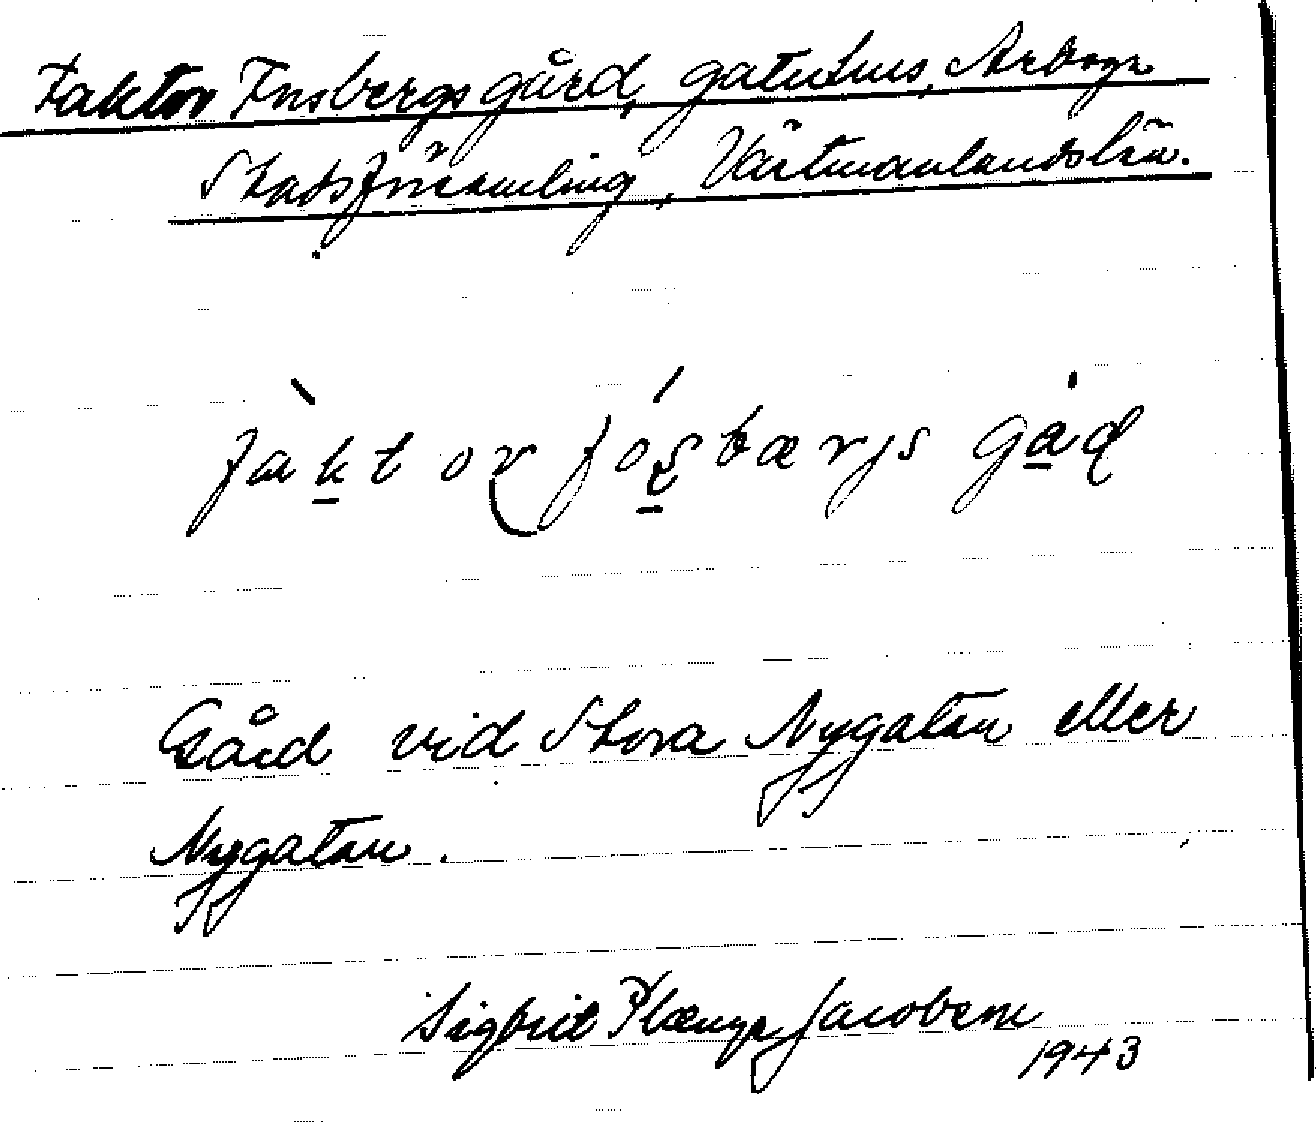 Faktor Forsbergs gård, gatuhus, Arboga
Stadsförsamling, Västmanlands län.
faktor fosbærjs gåd
Gård vid Stora Nygatan eller
Nygatan.
Sigbrit Plænge Jacobson
1943